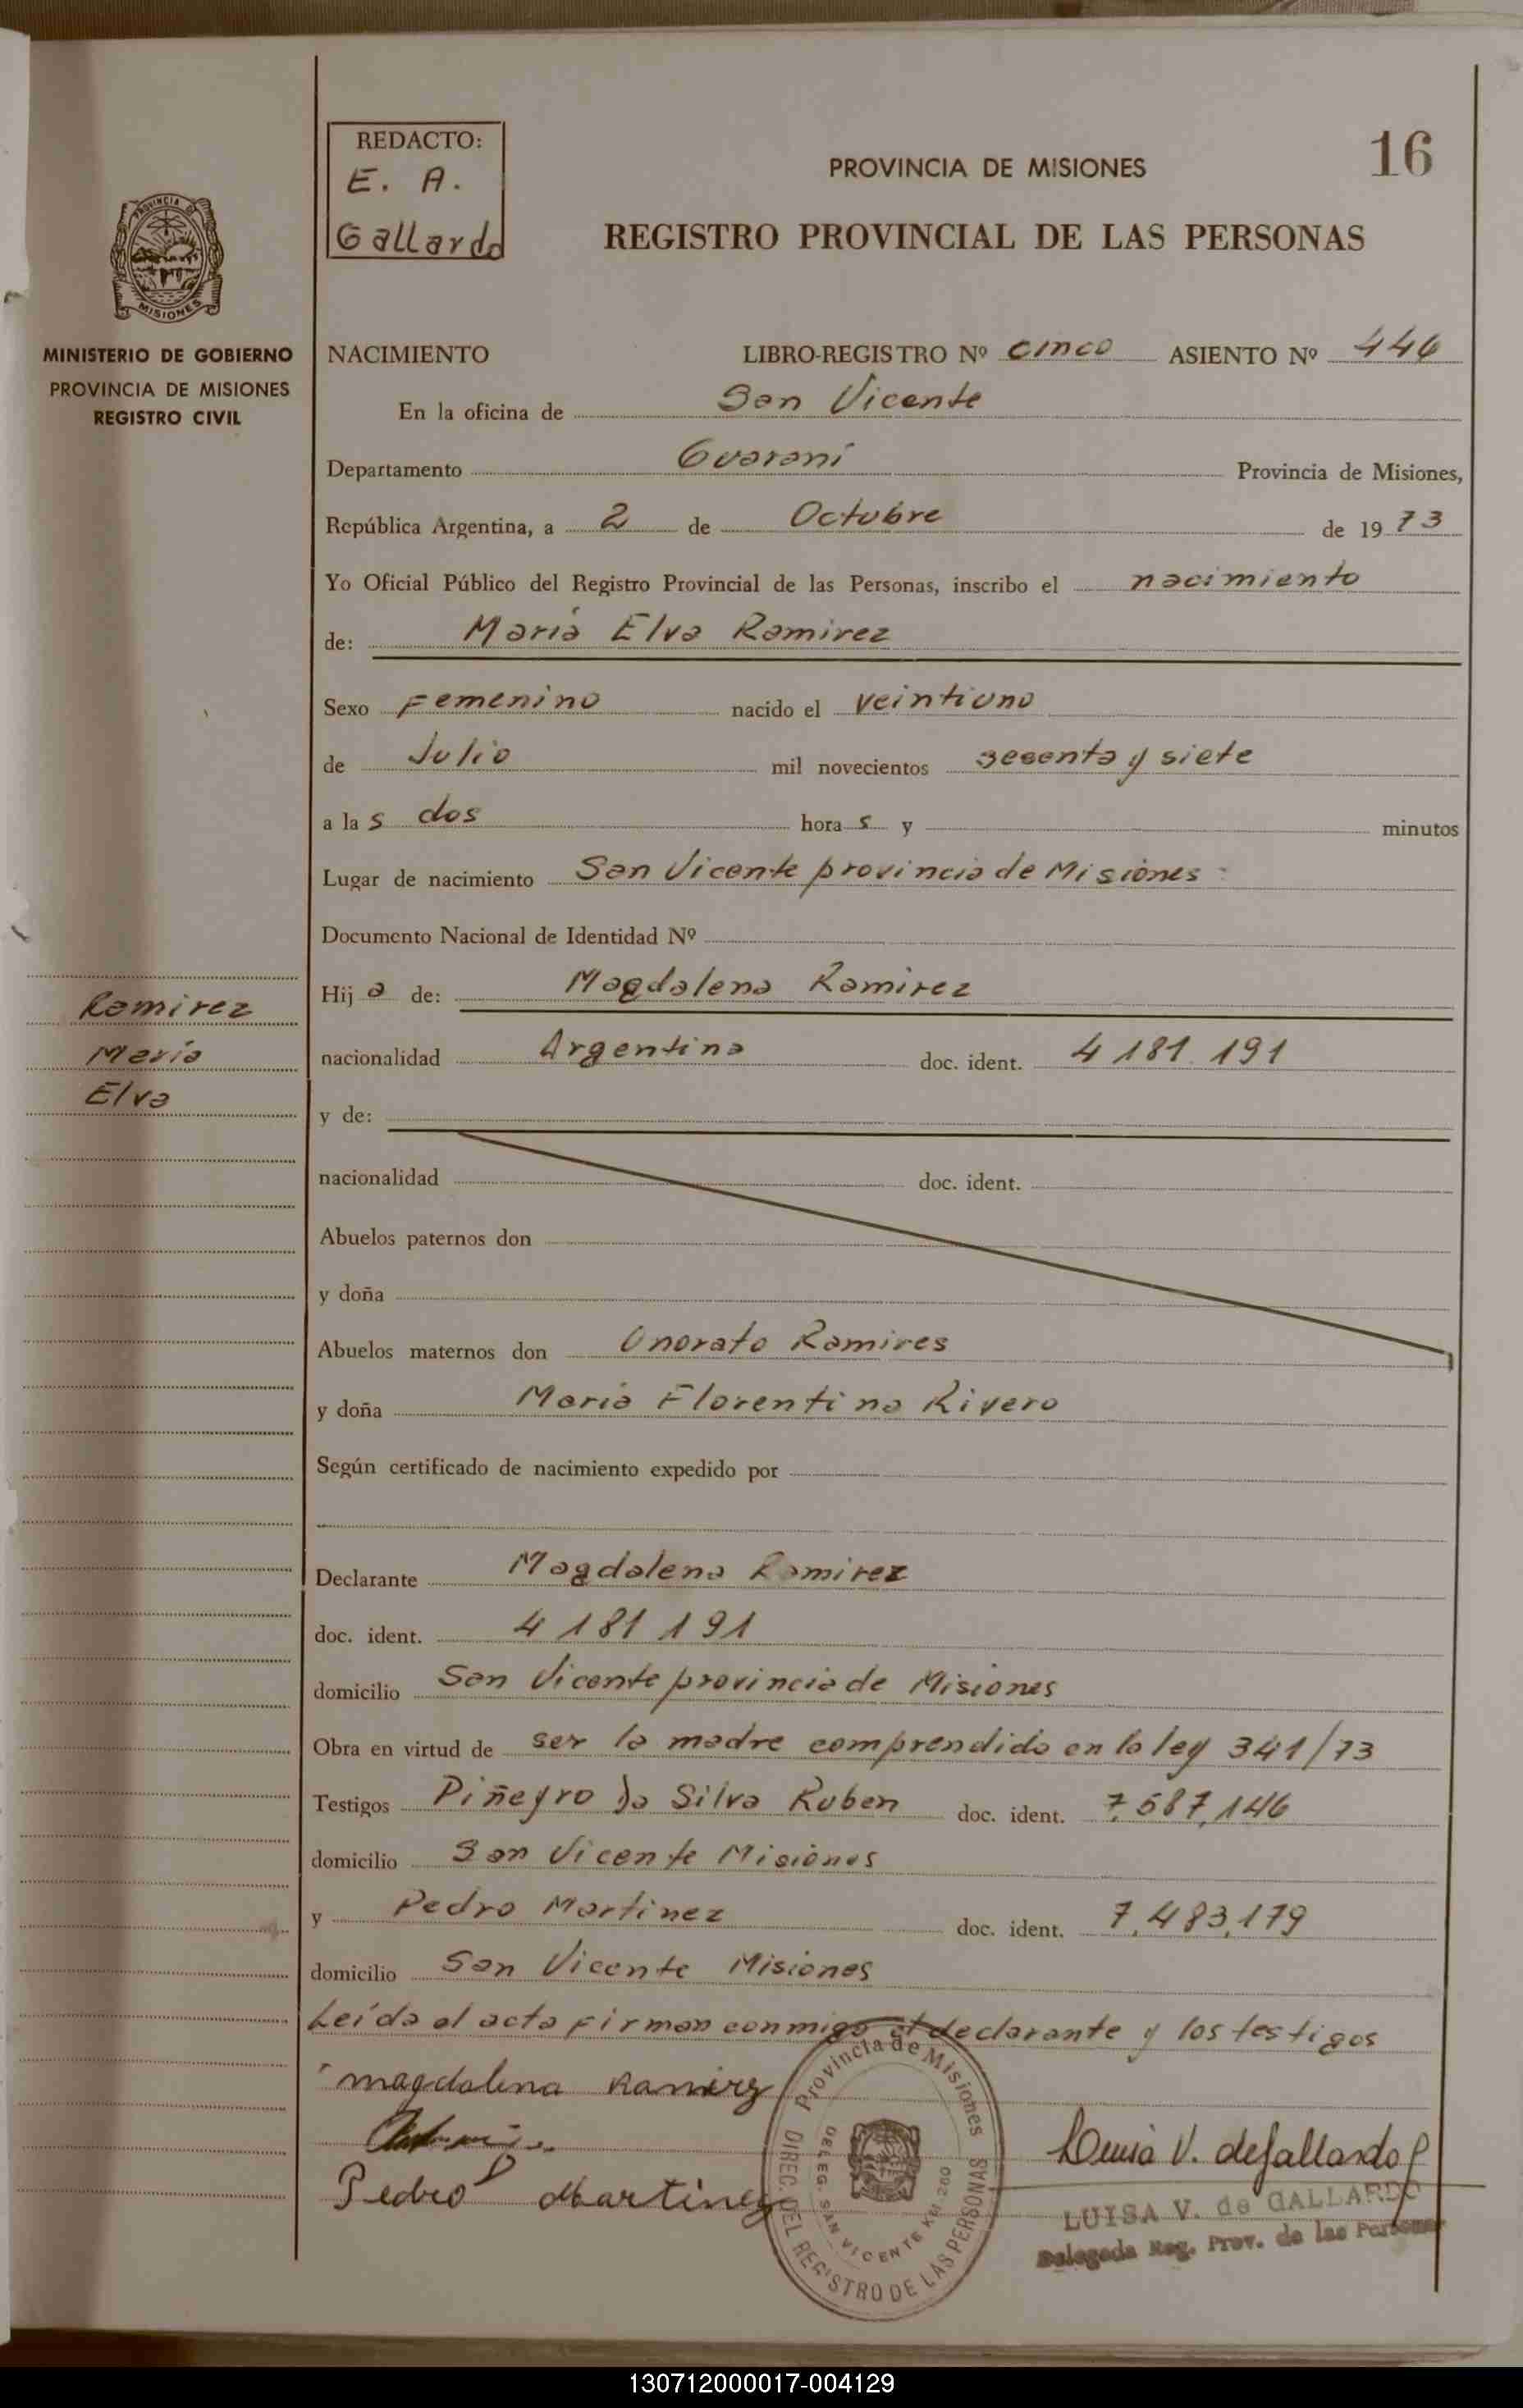 REDACTO:
E. A.
Gallardo
16
PROVINCIA DE MISIONES
REGISTRO PROVINCIAL DE LAS PERSONAS
PROVINCIA DE
MISIONES
MINISTERIO DE GOBIERNO
PROVINCIA DE MISIONES
REGISTRO CIVIL
NACIMIENTO LIBRO-REGISTRO Nº cinco ASIENTO Nº 446
En la oficina de San Vicente
Departamento Guaraní Provincia de Misiones,
República Argentina, a 2 de Octubre de 1973
Yo Oficial Público del Registro Provincial de las Personas, inscribo el nacimiento
de: María Elva Ramirez
Sexo Femenino nacido el veintiuno
de Julio mil novecientos sesenta y siete
a las dos horas y minutos
Lugar de nacimiento San Vicente provincia de Misiones
Documento Nacional de Identidad Nº
Hija de: Magdalena Ramirez
Ramirez
María
Elva
nacionalidad Argentina doc. ident. 4 181 191
y de:
nacionalidad doc. ident.
Abuelos paternos don
y doña
Abuelos maternos don Onorato Ramires
y doña María Florentina Rivero
Según certificado de nacimiento expedido por
Declarante Magdalena Ramirez
doc. ident. 4 181 191
domicilio San Vicente provincia de Misiones
Obra en virtud de ser la madre comprendida en la ley 341/73
Testigos Piñeyro Da Silva Ruben doc. ident. 7,587,146
domicilio San Vicente Misiones
y Pedro Martinez doc. ident. 7,483,179
domicilio San Vicente Misiones
Leída el acta firman conmigo el declarante y los testigos
magdalena Ramirez
Pedro Martinez
Provincia de Misiones
DIREC. DEL REGISTRO DE LAS PERSONAS
DELEG. SAN VICENTE KM. 260
Luisa V. de Gallardo
LUISA V. de GALLARDO
Delegada Reg. Prov. de las Personas
130712000017-004129